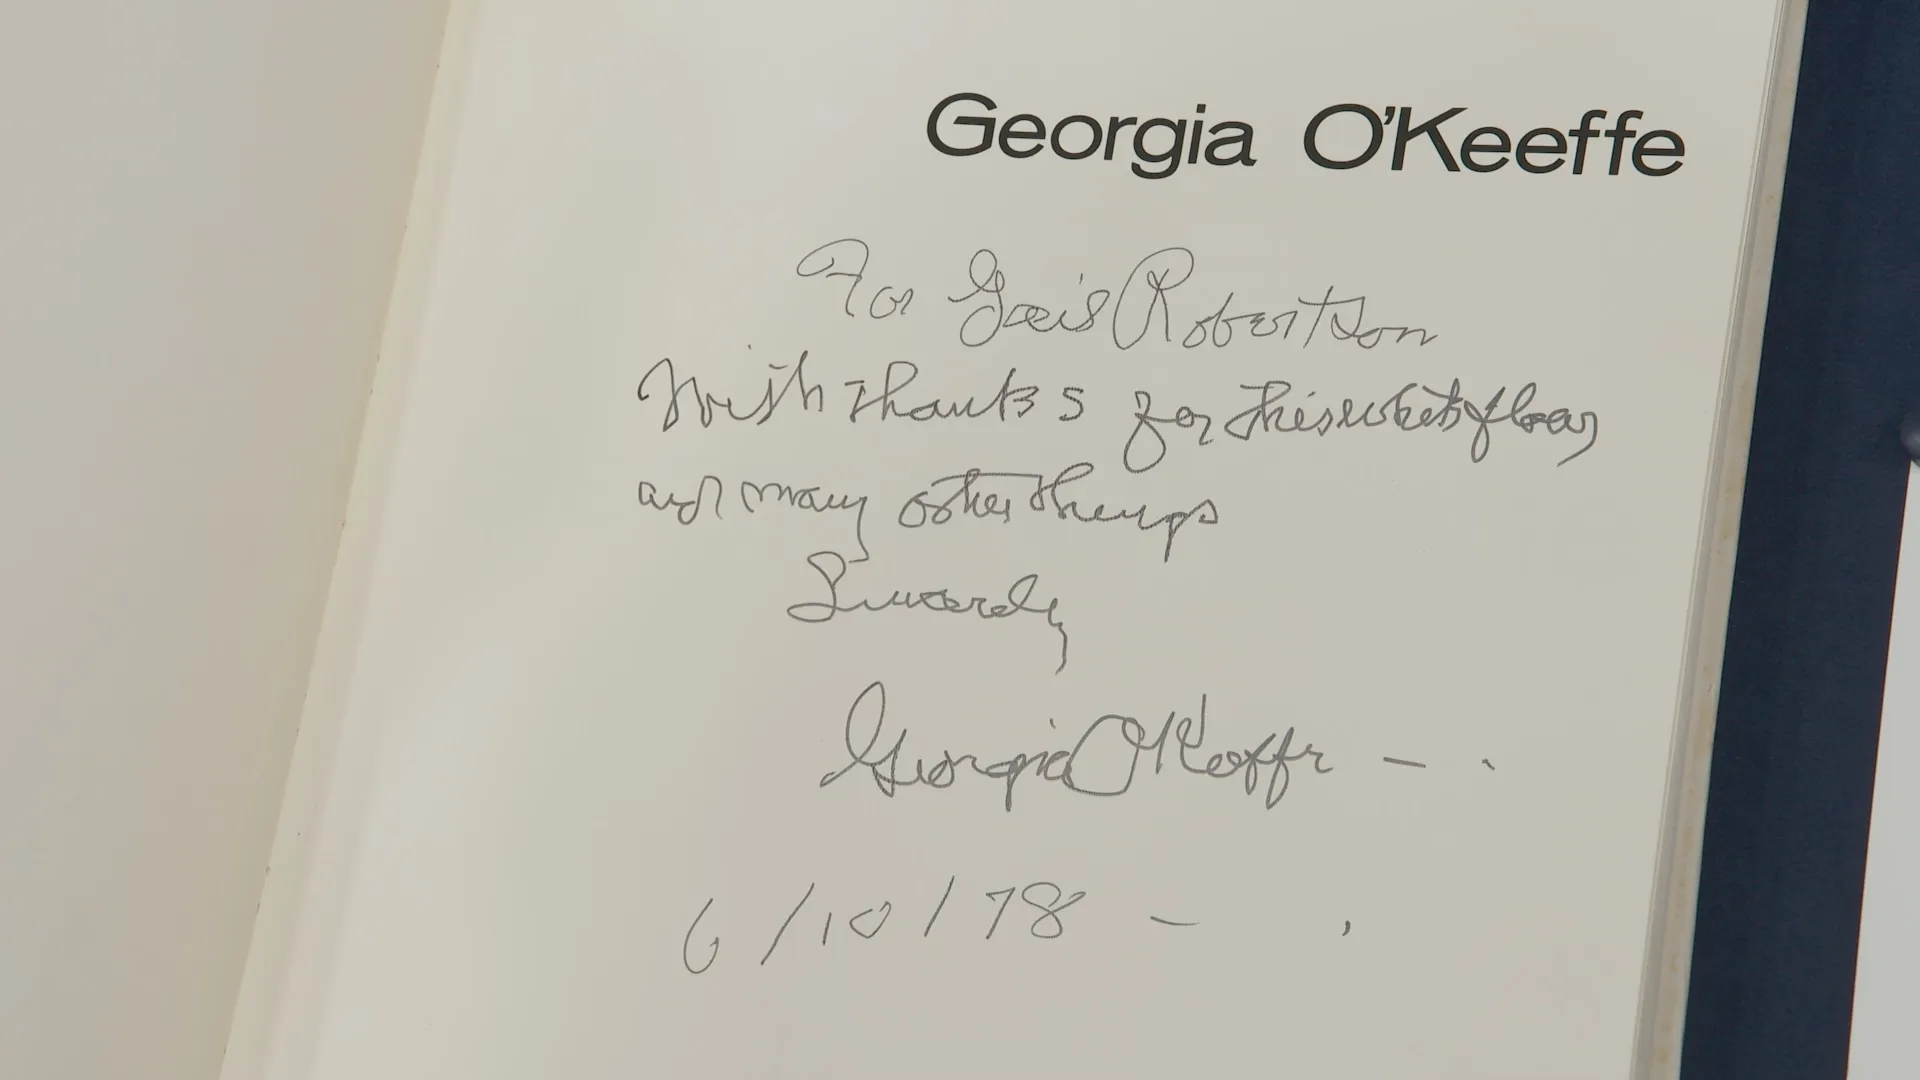 Georgia O'Keeffe
For Gail Robertson
With thanks for this white floor
and many other things
Sincerely
Georgia O'Keeffe — .
6/10/78 — .